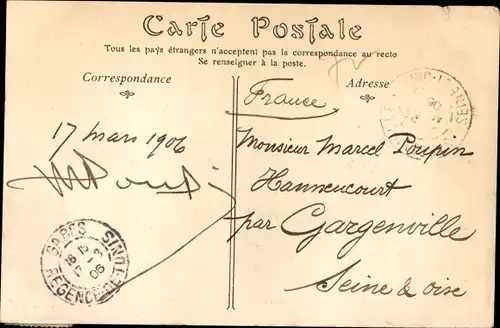 Carte Postale
Tous les pays étrangers n'acceptent pas la correspondance au recto
Se renseigner à la poste.
Correspondance
Adresse
France
17 mars 1906
Monsieur Marcel Poupin
Hanneucourt
par Gargenville
Seine & oise
GABES
REGENCE DE TUNIS